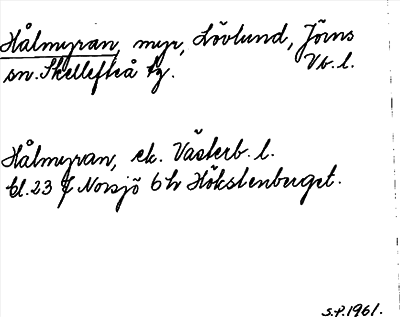 Hålmyran, myr, Lövlund, Jörns
sn. Skellefteå tg. Vb. l.
Hålmyran, ek. Västerb. l.
bl. 23 f Norsjö 6 h Hökstenberget.
S.P. 1961.